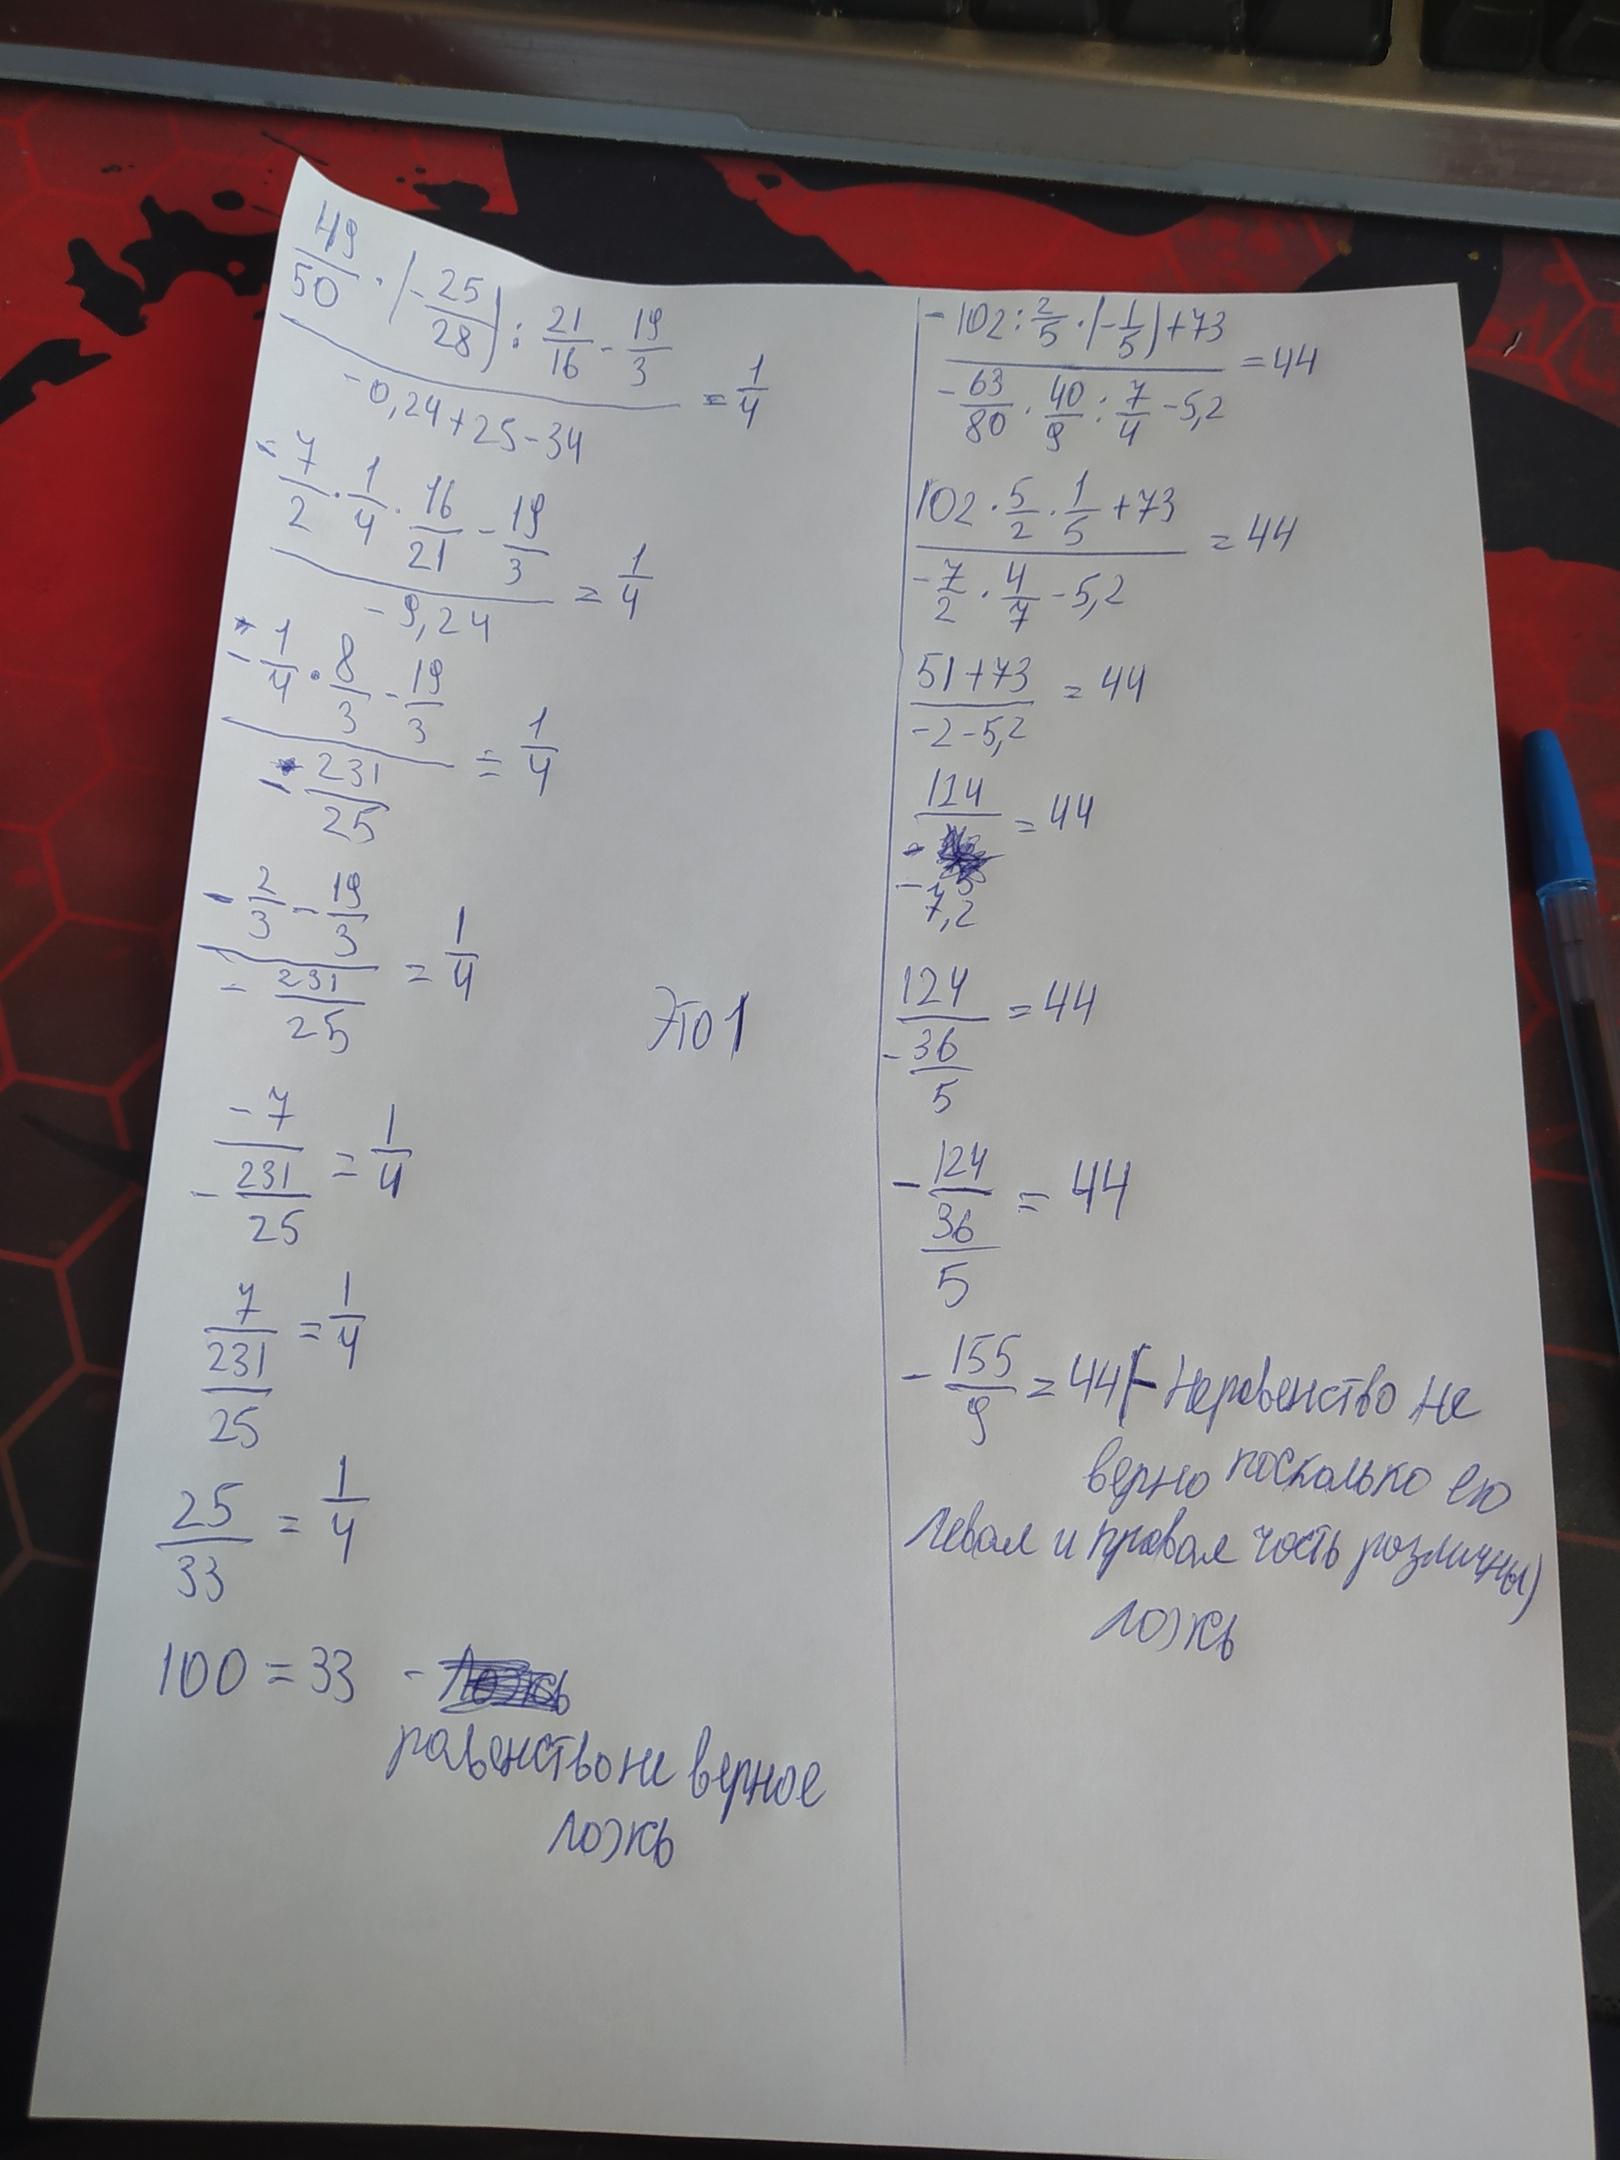 49/50 · (-25/28) : 21/16 - 19/3
-0,24+25-34 = 1/4
-7/2 · 1/4 · 16/21 - 19/3
-9,24 = 1/4
-1/4 · 8/3 - 19/3
-231/25 = 1/4
-2/3 - 19/3
-231/25 = 1/4
-7
-231/25 = 1/4
7
231/25 = 1/4
25/33 = 1/4
100 = 33 -
равенство не верное
ложь
Это 1
-102 : 2/5 · (-1/5) + 73
-63/80 · 40/9 : 7/4 - 5,2 = 44
102 · 5/2 · 1/5 + 73
-7/2 · 4/7 - 5,2 = 44
51+73
-2-5,2 = 44
124
-7,2 = 44
124
-36/5 = 44
-124
36/5 = 44
-155/9 = 44 (- Неравенство не
верно поскольку его
левая и правая часть различны)
ложь